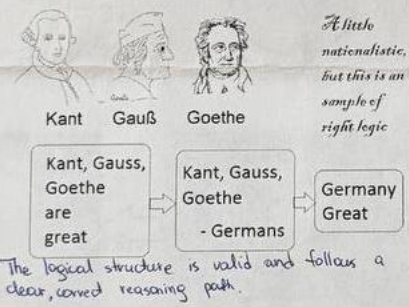 A little
nationalistic,
but this is an
sample of
right logic
Kant Gauß Goethe
Kant, Gauss,
Goethe
are
great
Kant, Gauss,
Goethe
- Germans
Germany
Great
The logical structure is valid and follows a
clear, correct reasoning path.